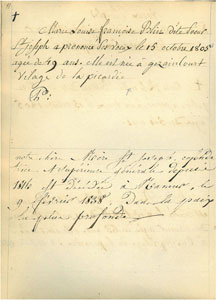 Marie Louise françoise Blin dite Soeur
St joseph a prononcé ses voeux le 15 octobre 1805
agée de 49 ans, elle est née a gezaincourt
vilage de la picardie
notre chère Mère St joseph, cofonda
trice et supérieure Générale depuis
1816 est Décédée à Namur le
9 février 1838 Dans la paix
la plus profonde